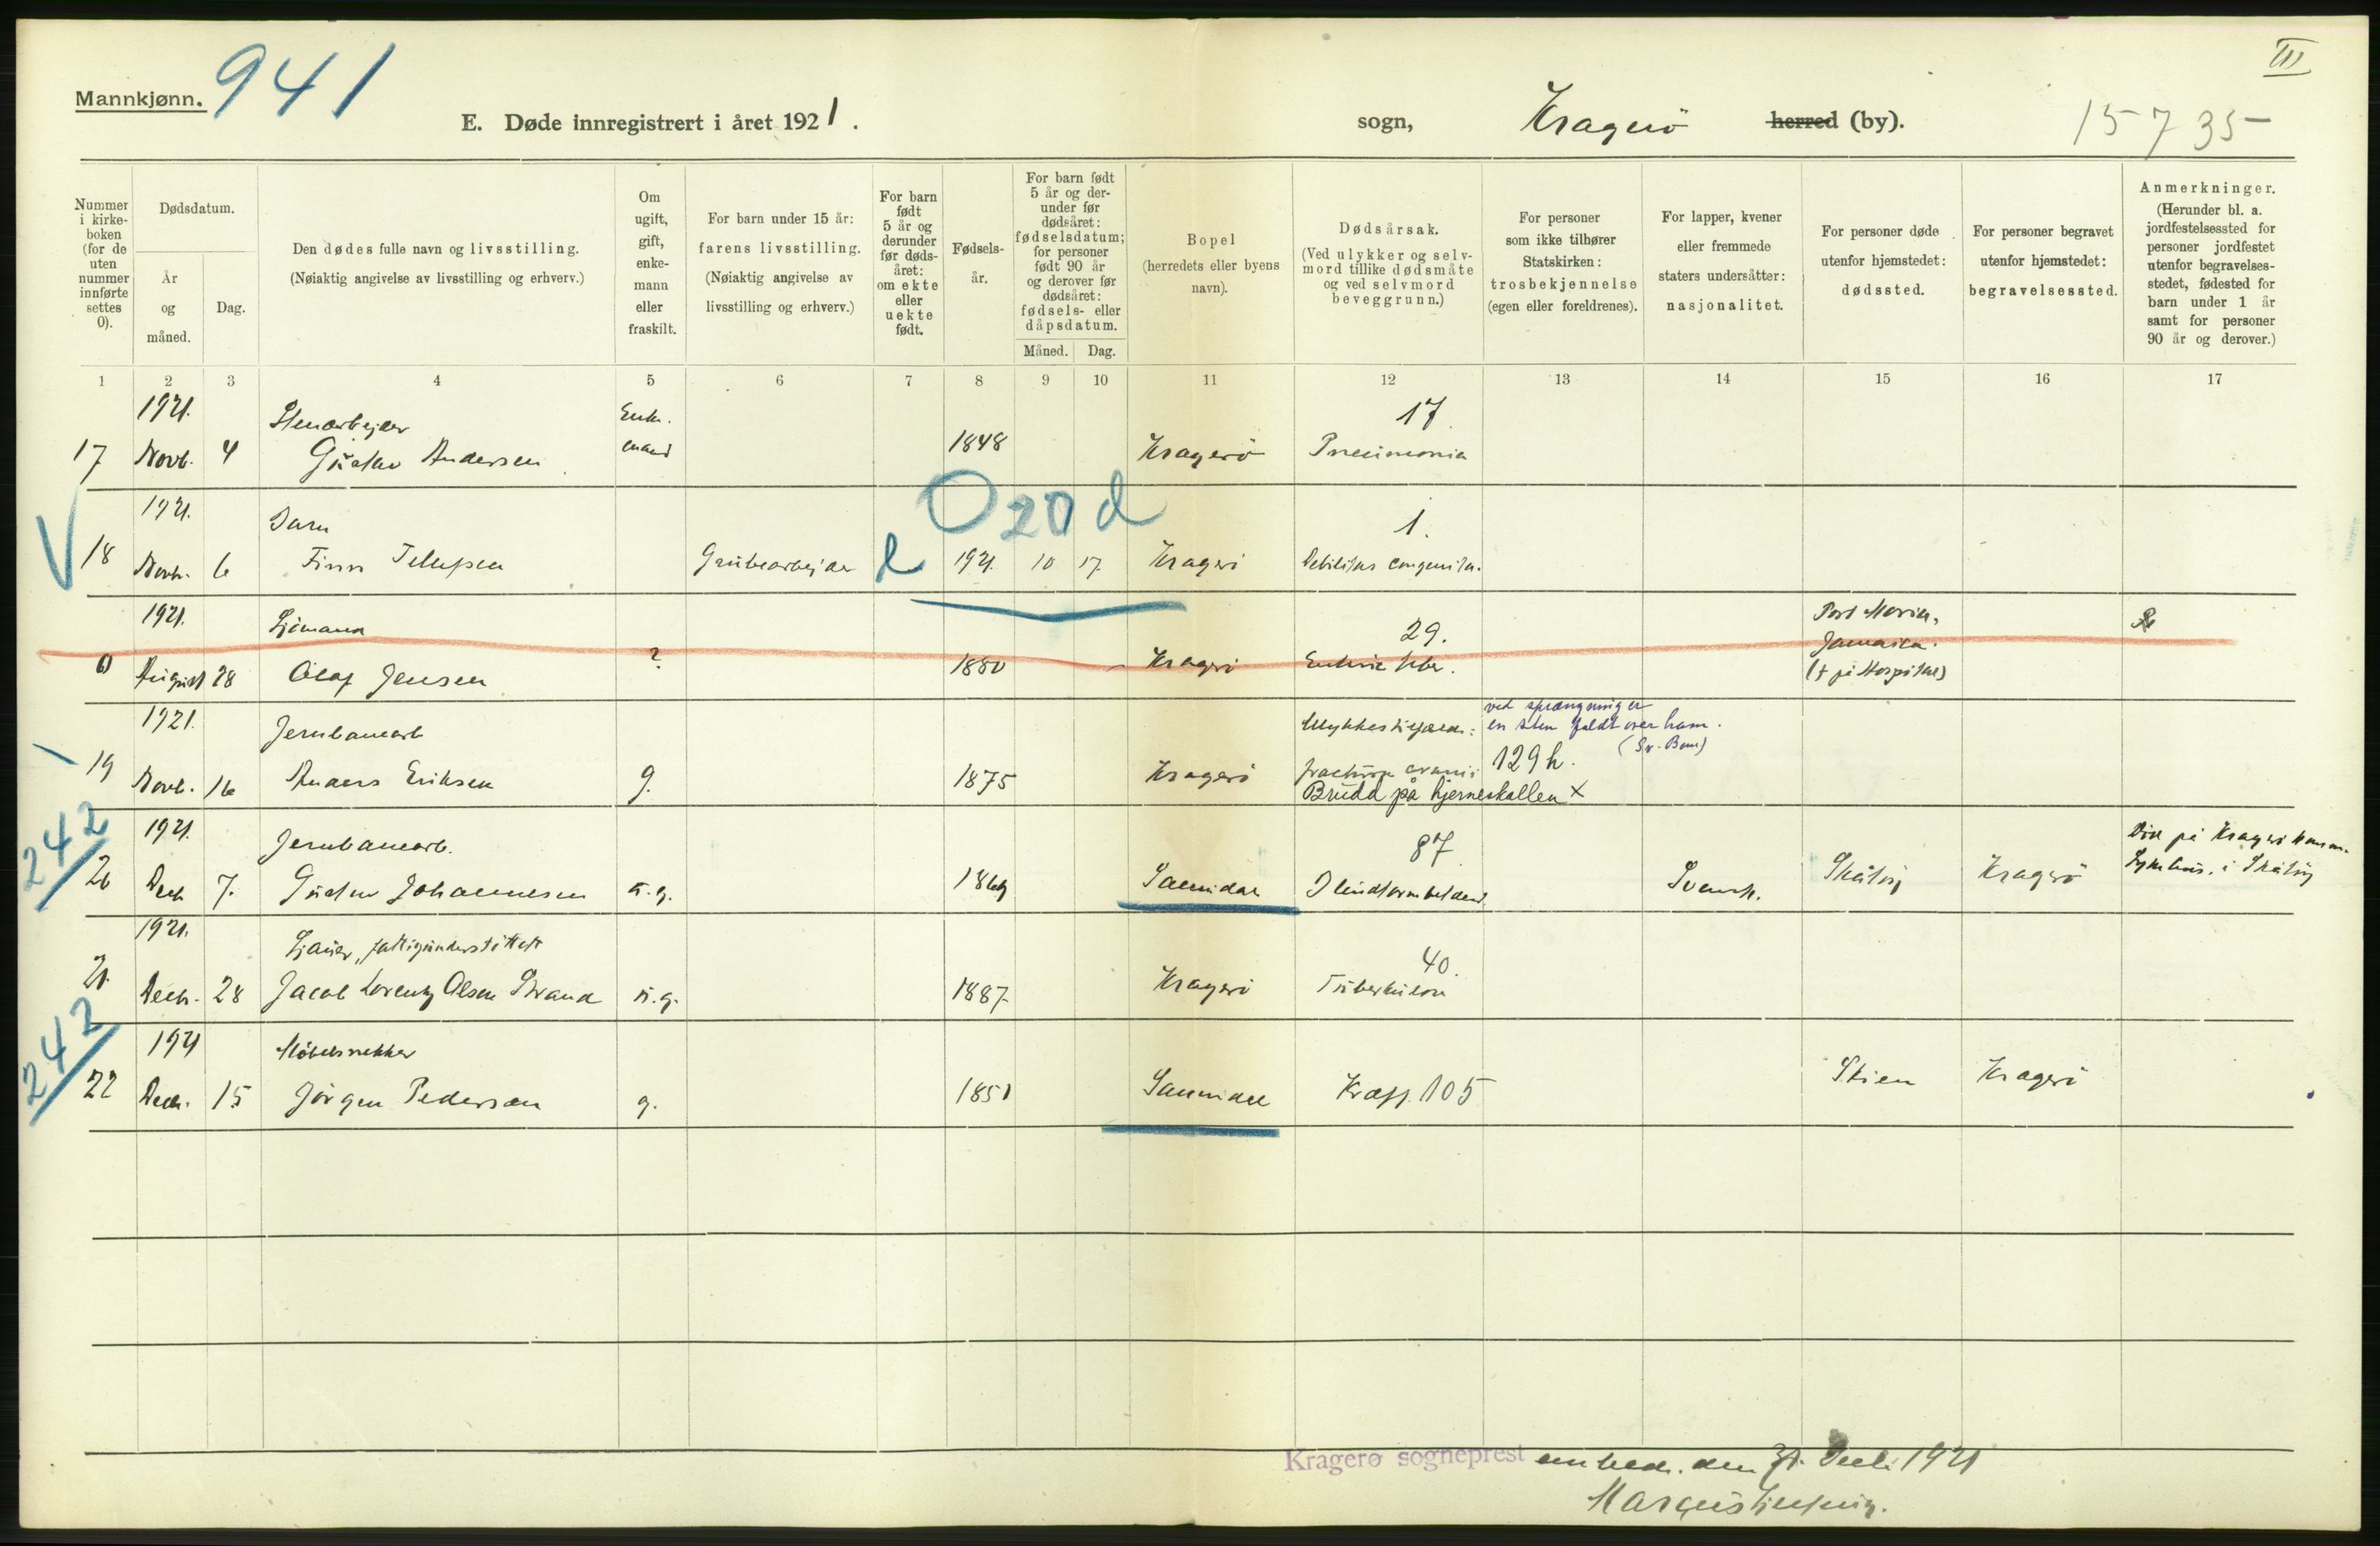 III
Mannkjønn.
941
E. Døde innregistrert i året 1921.
sogn, Kragerö herred (by).
15735
Nummer i kirke- boken (for de uten nummer innførte settes 0).
Dødsdatum.
År og måned.
Dag.
Den dødes fulle navn og livsstilling.
(Nøiaktig angivelse av livsstilling og erhverv.)
Om ugift, gift, enke- mann eller fraskilt.
For barn under 15 år:
farens livsstilling.
(Nøiaktig angivelse av
livsstilling og erhverv.)
For barn født 5 år og derunder før døds- året: om ekte eller uekte født.
Fødsels- år.
For barn født 5 år og der- under før dødsåret: fødselsdatum; for personer født 90 år og derover før dødsåret: fødsels- eller dåpsdatum.
Måned. Dag.
Bopel
(herredets eller byens
navn).
Dødsårsak.
(Ved ulykker og selv-
mord tillike dødsmåte
og ved selvmord
beveggrunn.)
For personer
som ikke tilhører
Statskirken:
trosbekjennelse
(egen eller foreldrenes).
For lapper, kvener
eller fremmede
staters undersåtter:
nasjonalitet.
For personer døde
utenfor hjemstedet:
dødssted.
For personer begravet
utenfor hjemstedet:
begravelsessted.
Anmerkninger.
(Herunder bl. a.
jordfestelsessted for
personer jordfestet
utenfor begravelses-
stedet, fødested for
barn under 1 år
samt for personer
90 år og derover.)
1 2 3 4 5 6 7 8 9 10 11 12 13 14 15 16 17
1921. Stenarbejder Enke- 17.
17 Novb. 4 Gustav Andersen mand 1848 Kragerö Pneumonia
O 20 d
1921. Barn 1.
18 Novb. 6 Finn Grubearbejder 1921. 10 17 Kragerö Debilitas congenita.
1921. Sjömann 29. Port Maria,
Jamaica.
0 August 28 Olaf Jensen ? 1880 Kragerö Enteric feber. (+ på Hospital)
1921. Jernbanearb Ulykkestilfælde: ved sprængning er
en sten faldt over ham.
(Sv. Bom)
19 Novb. 16 Anders Eriksen g. 1875 Kragerö fractura cranii 129 h.
Brudd på hjerneskallen x
242
1921. Jernbanearb. 87. Död på Kragerö
20 Decb 7. Gustav Johannesen u.g. Sannidal Svensk. Skåtöy Kragerö i Skåtöy
1921. Sjauer, fattigunderstöttet 40.
21. Decb. 28 Jacob Lorentz Olsen Strand u.g. 1887 Kragerö Tuberkulose
242
1921 Möbelsnekker
22 Decb. 15 Jörgen Pedersen g. 1851 Sannidal Kræft. 105 Skien Kragerö
Kragerø sogneprest embede. den 31. Decb. 1921